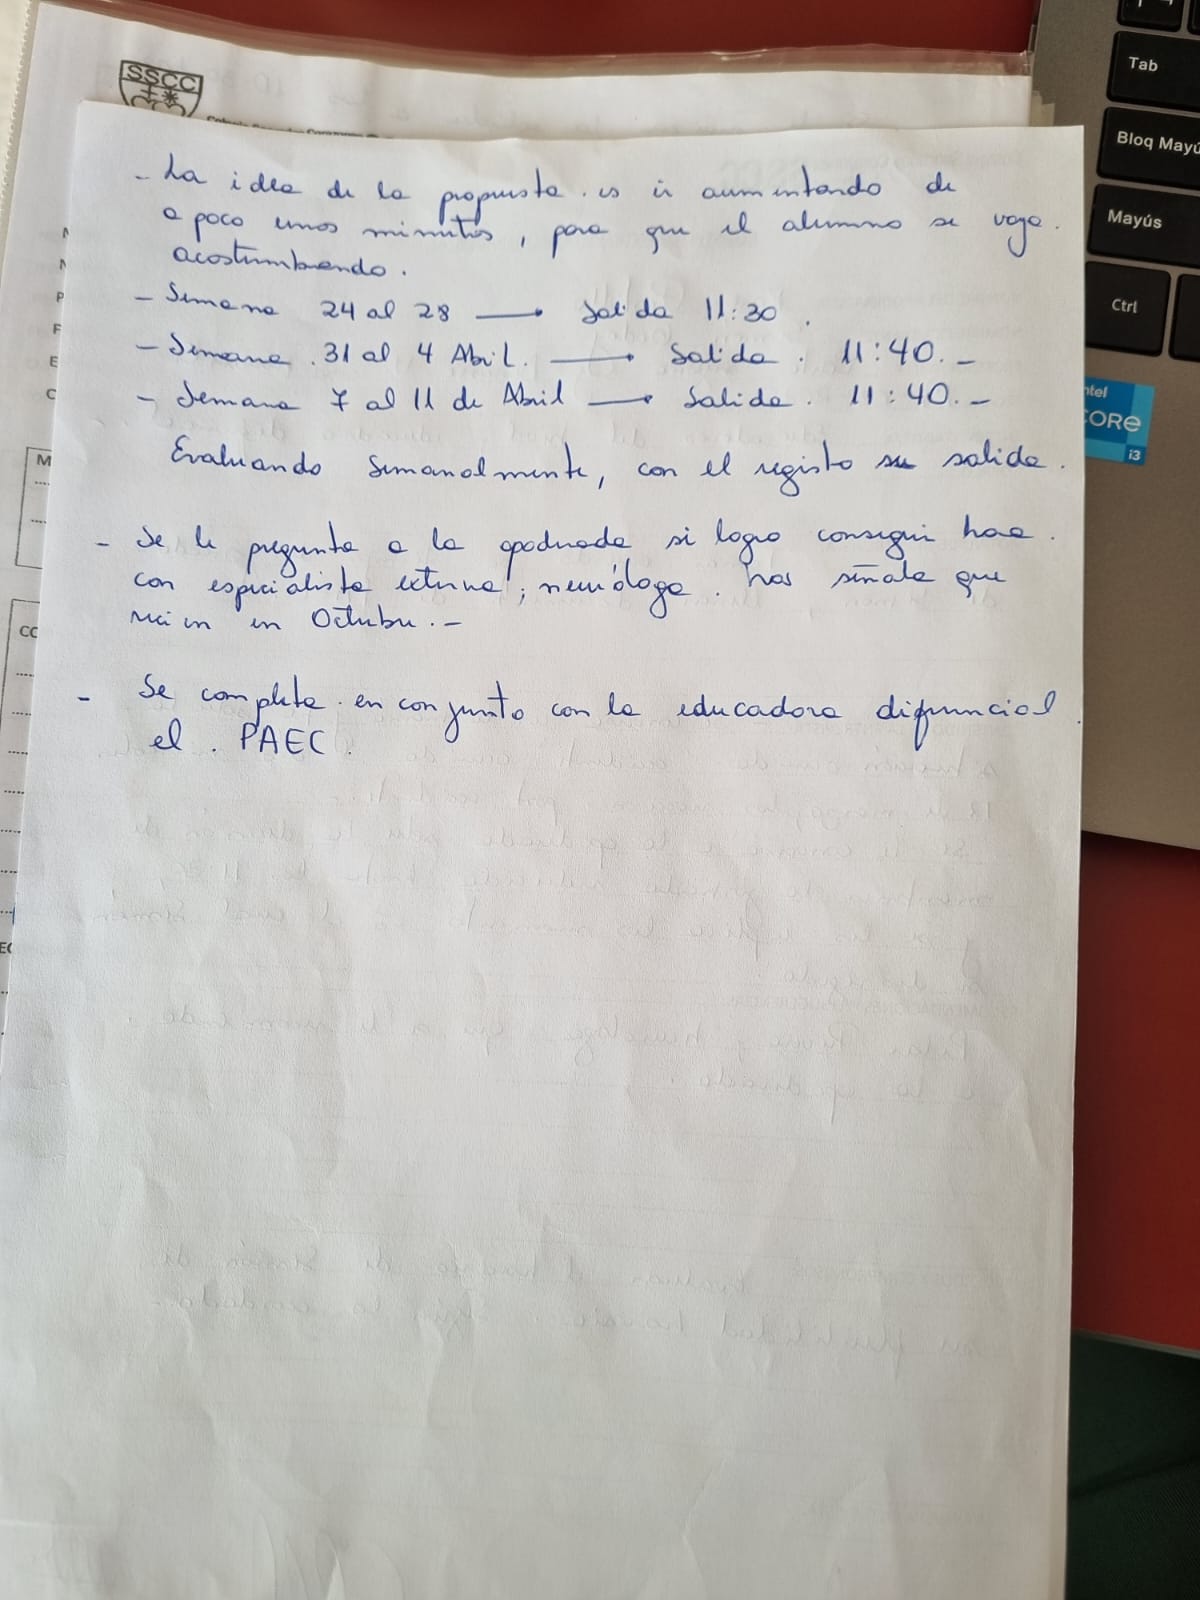 SSCC
- La idea de la propuesta es ir aumentando de
a poco unos minutos, para que el alumno se vaya
acostumbrando.
- Semana 24 al 28 → Salida 11:30.
- Semana 31 al 4 Abril. → Salida. 11:40.-
- Semana 7 al 11 de Abril → Salida. 11:40.-
Evaluando semanalmente, con el registo su salida.
- Se le pregunta a la apoderada si logro conseguir hora
con especialista externa; neuróloga. nos señala que
recien en Octubre.-
- Se completa en conjunto con la educadora diferencial
el PAEC.
Tab
Bloq Mayú
Mayús
Ctrl
intel
CORE
i3